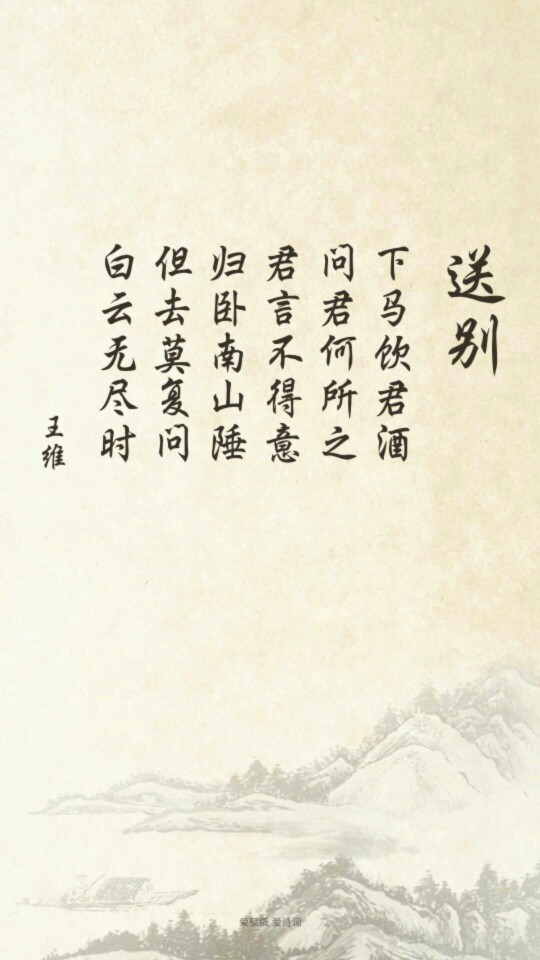 送别
下马饮君酒
问君何所之
君言不得意
归卧南山陲
但去莫复问
白云无尽时
王维
爱壁纸 爱诗词